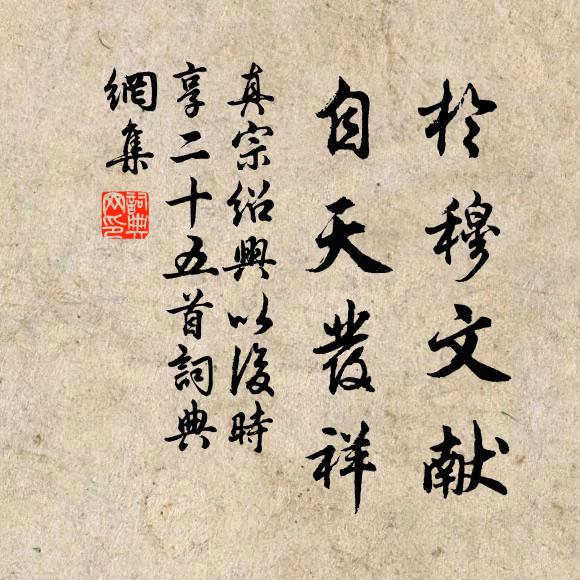 於穆文献
自天發祥
真宗紹興以後時
享二十五首詞典
網集
詞典
网印